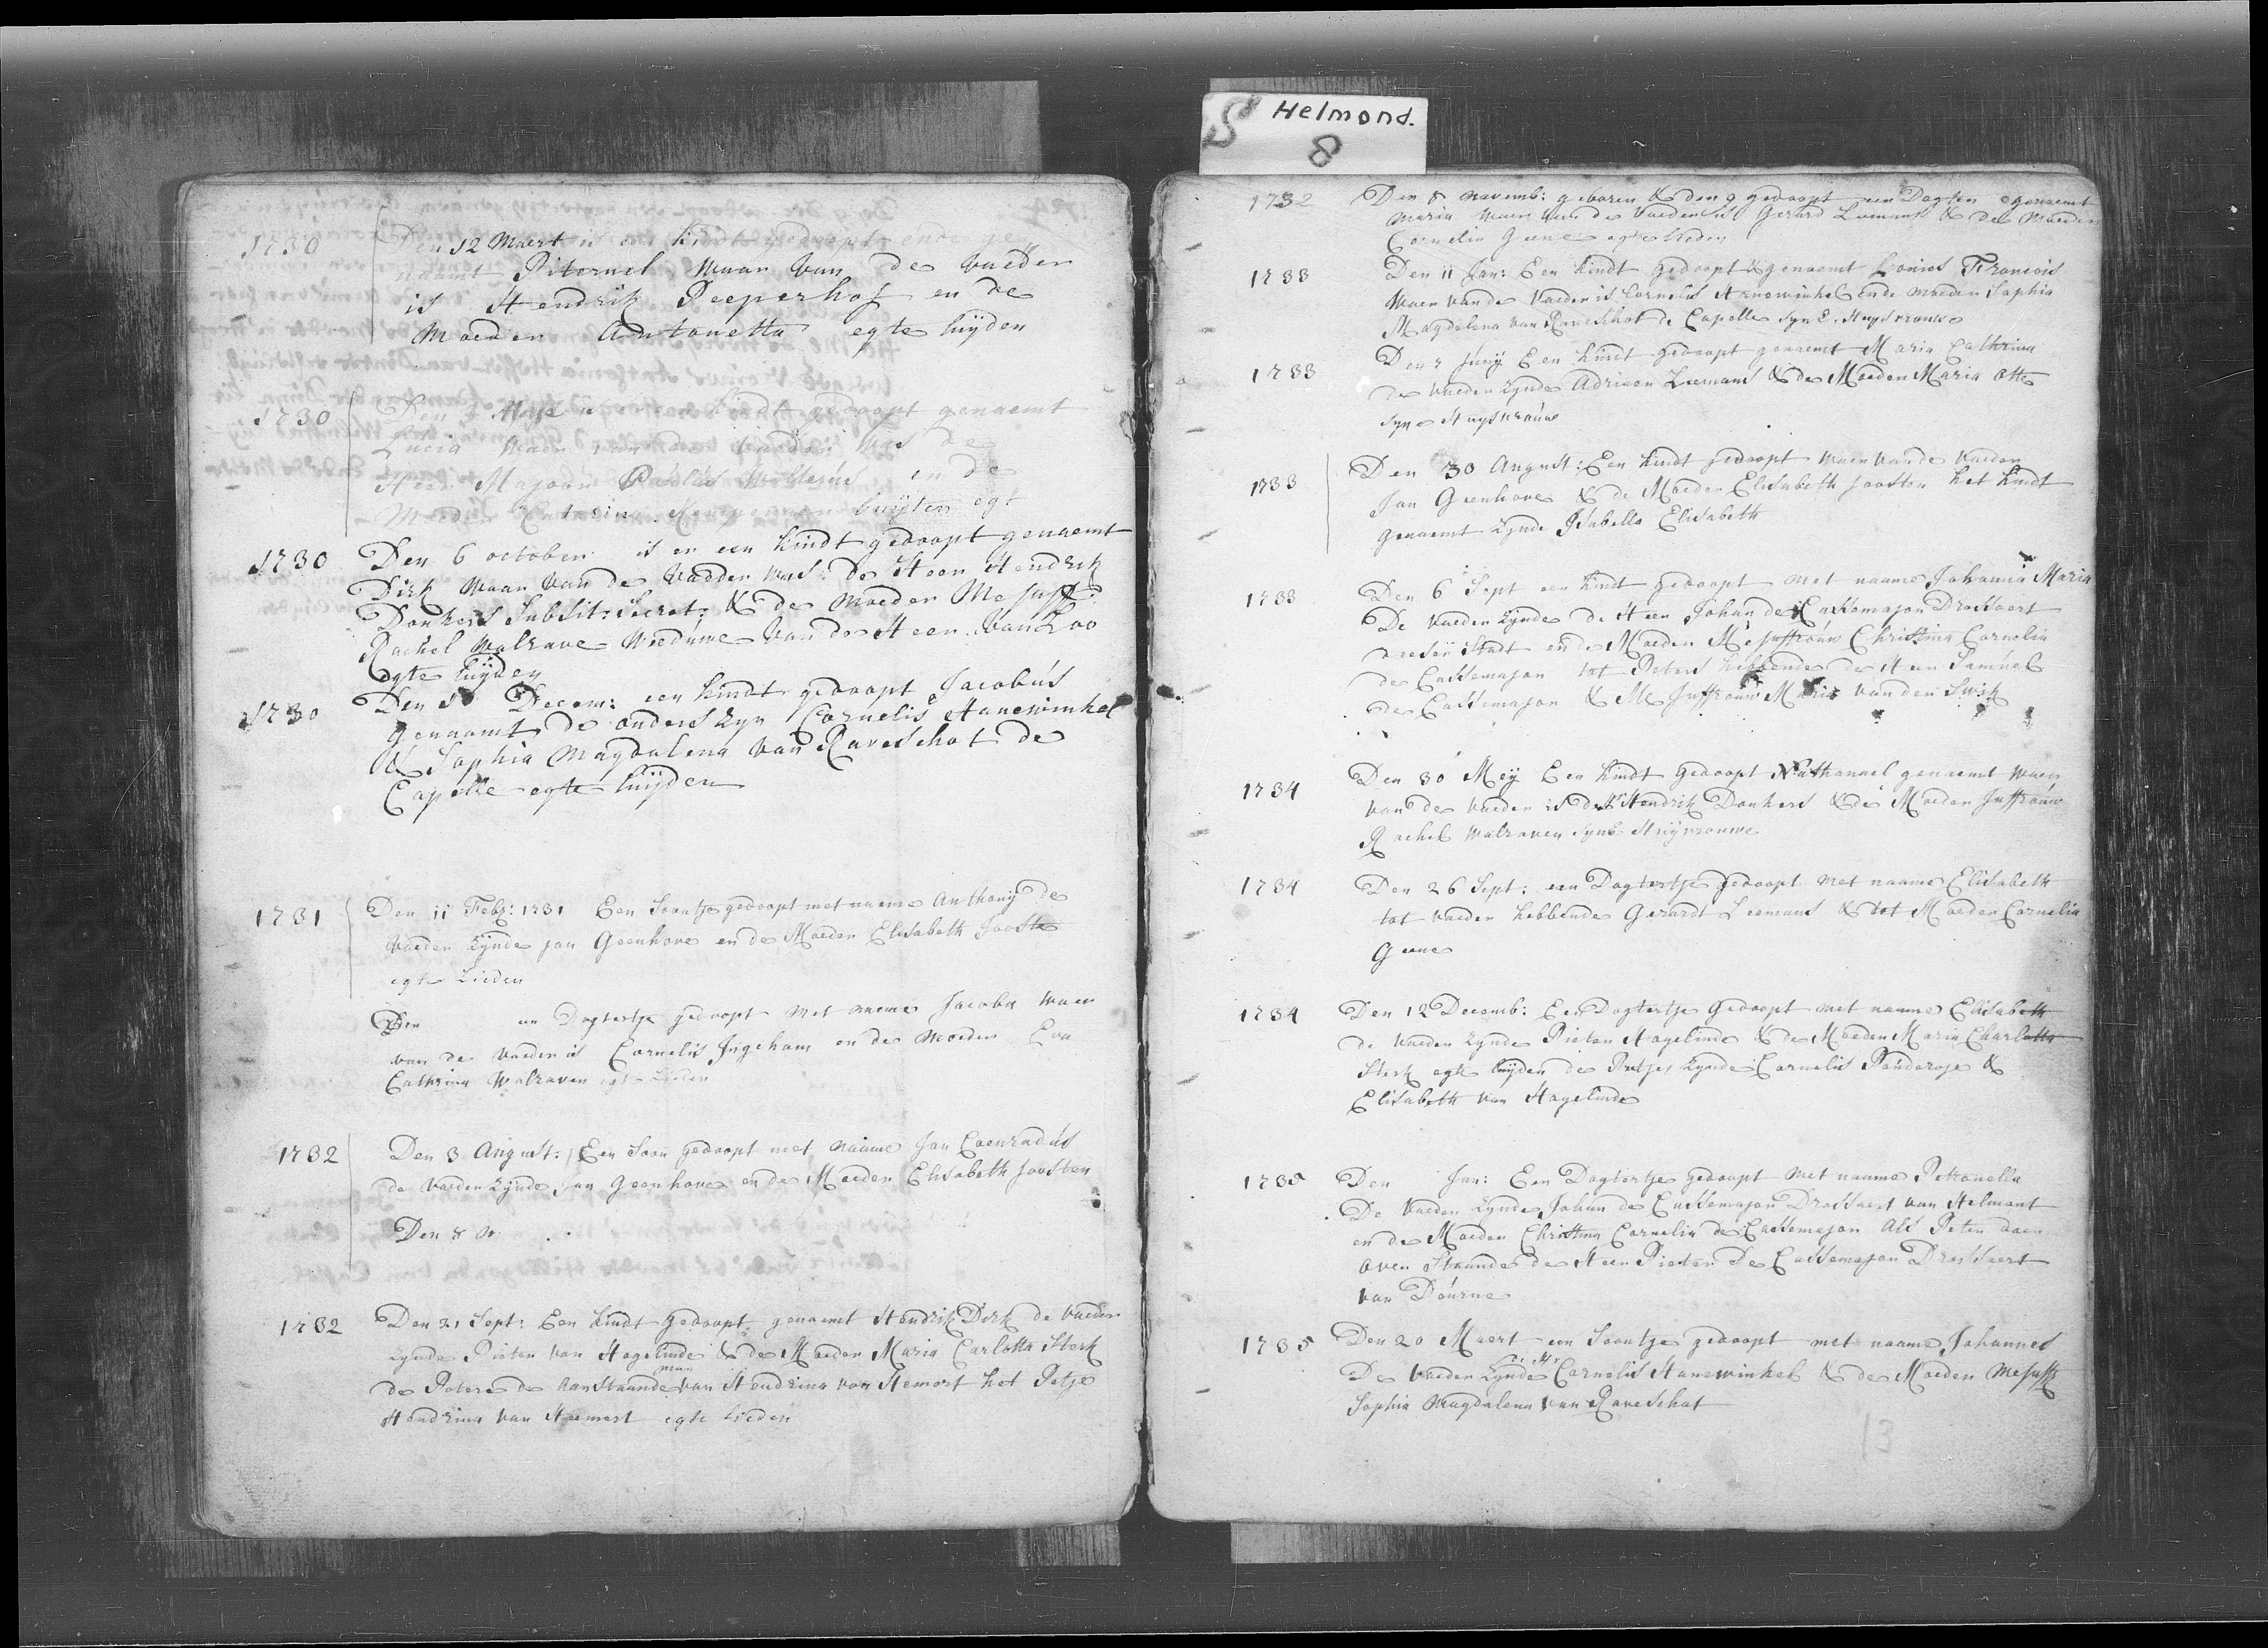 S Helmond.
8
1730 Den 12 Maert is een kindt gedoopt ende ge
naamt Piternel waar van de vaeder
is Hendrik Peeperhof en de
moeder Antonetta egte luÿden
1730 Den kindt gedoopt genaemt
Lucia waer van de vaeder was de
Heer Majoor Paulus en de
Moeder Catarina buÿten egt
1730 Den 6 october is er een kindt gedoopt genaemt
Dirk waar van de vadder was de Heer Hendrik
Donkers Subsit: Secret: & de moeder Mejuff:
Rachel Walrave Weduwe van de Heer van Loo
egte luÿden
1730 Den Decem: een kindt gedoopt Jacobús
genaamt de ouders zyn Cornelis Hanewinkel
& Sophia Magdalena van Raveschot de
Capelle egte luÿden
1731 Den 11 Febr: 1731 Een Soontje gedoopt met naeme Anthonÿ de
Vaeder zynde Jan Geenhove en de Moeder Elisabeth Jooste
egte Lieden
Den een Dogtertje gedoopt met naeme Jacoba waer
van de vaeder is Cornelis Ingeham en de moeder Eva
Cathrina Walraven egte Lieden
1732 Den 3 August: Een Soon gedoopt met naame Jan Coenradús
de Vaeder zynde Jan Geenhove en de Moeder Elisabeth Joosten
Den 8 N
1732 Den 21 Sept: Een kindt gedoopt genaemt Hendrik Dirk de Vaeder
zynde Pieter van Hagelinde & de Moeder Maria Carlotta Sterk
man
de Peter de aanstaande van Hendrina van Hemert het Petje
Hendrina van Heemert egte lieden
1732 Den 8 novemb: geboren & den 9 gedoopt een Dogter genaemt
Maria waer van de Vaeder is Gerard Leemans & de Moeder
Cornelia Geene egte lieden
1733 Den 11 Jan: Een kindt gedoopt & genaemt Louies Francois
Waer van de Vaeder is Cornelis Hanewinkel ende Moeder Sophia
Magdalena van Raveschot de Capelle syn E. Huysvrouwe
1733 Den 7 Junÿ Een kindt gedoopt genaemt Maria Cathrina
de Vaeder zynde Adriaen Leemans & de Moeder Maria Otte
syne Huysvrouw
1733 Den 30 August: Een kindt gedoopt waer van de Vaeder
Jan Geenhove & de Moeder Elisabeth Joosten het kindt
genaemt zynde Isabella Elisabeth
1733 Den 6 Sept een kindt gedoopt met naame Johannia Maria
De Vaeder zynde de Heer Johan de Cassemajor Drossaert
deeser Stadt en de Moeder Mejuffrouw Christina Cornelia
de Cassemajor tot Peters hebbende de Heer Samuel
de Cassemajor & Me Juffrouw Maria van den Swik
1734 Den 30 Meÿ Een kindt gedoopt Nathanael genaemt waer
van de Vaeder is de Hr Hendrik Donkers & de Moeder Juffrouw
Rachel Walraven syne Huÿvrouwe
1734 Den 26 Sept: een Dogtertje gedoopt met naame Elisabeth
tot vaeder hebbende Gerardt Leemans & tot Moeder Cornelia
Geene
1734 Den 12 Decemb: Een Dogtertje gedoopt met naame Elisabeth
de vaeder zynde Pieter Hagelinde & de Moeder Maria Charlotta
Sterk egte luÿden de Petjes zynde Cornelis &
Elisabeth van Hagelinde
1735 Den Jan: Een Dogtertje gedoopt met naame Petronella
De Vaeder zynde Johan de Cassemajor Drossaert van Helmont
en de Moeder Christina Cornelia de Cassemajor Als Peter daer
over staande de Heer Pieter De Cassemajor Drossaert
van Deúrne
1735 Den 20 Maert een Soontje gedoopt met naame Johannes
de Hr
De vaeder zynde Cornelis Hanewinkel & de Moeder Mejuffr
Sophia Magdalena van Raveschot
13